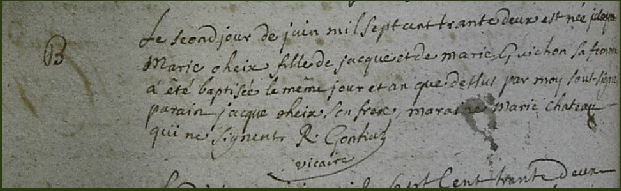 B
Le second jour de juin mil sept cent trante deux est née
Marie oheix fille de jacque et de marie Guichon sa femme
a êté baptisée le même jour et an que dessus par moy sousigné
parain jacque oheix son frere, maraine Marie Chateau
qui ne signent, R.
vicaire
sept Cent trante deux